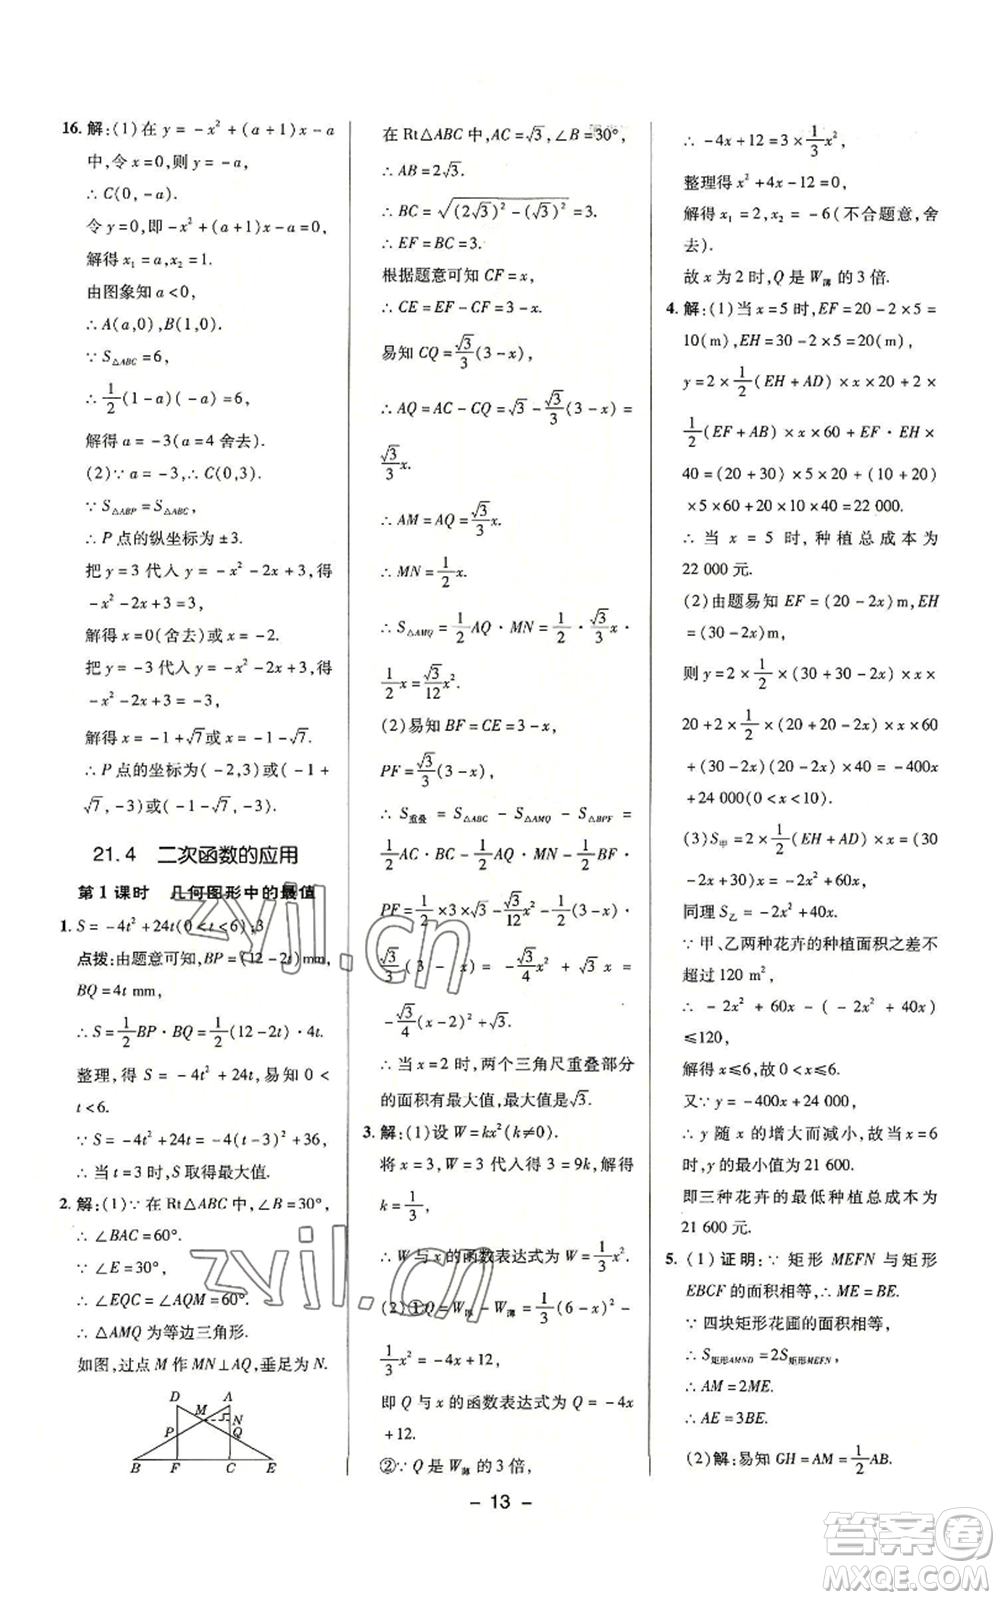 16. 解:(1)在 y = -x² + (a+1)x - a
中,令 x=0,则 y = -a,
∴ C(0, -a).
令 y=0,即 -x² + (a+1)x - a = 0,
解得 x₁ = a, x₂ = 1.
由图象知 a<0,
∴ A(a,0), B(1,0).
∵ S△ABC = 6,
∴ 1/2(1-a)(-a) = 6,
解得 a = -3(a=4 舍去).
(2)∵ a = -3, ∴ C(0,3).
∵ S△ABP = S△ABC,
∴ P 点的纵坐标为 ±3.
把 y=3 代入 y = -x² - 2x + 3, 得
-x² - 2x + 3 = 3,
解得 x=0(舍去)或 x = -2.
把 y = -3 代入 y = -x² - 2x + 3, 得
-x² - 2x + 3 = -3,
解得 x = -1+√7或 x = -1-√7.
∴ P 点的坐标为(-2,3)或(-1+
√7, -3)或(-1-√7, -3).
21.4 二次函数的应用
第1课时 几何图形中的最值
1. S = -4t² + 24t(0<t<6);3
点拨:由题意可知, BP = (12-2t) mm,
BQ = 4t mm,
∴ S = 1/2 BP·BQ = 1/2(12-2t)·4t.
整理,得 S = -4t² + 24t, 易知 0<
t<6.
∵ S = -4t² + 24t = -4(t-3)² + 36,
∴ 当 t=3 时, S 取得最大值.
2. 解:(1)∵ 在 Rt△ABC 中, ∠B = 30°,
∴ ∠BAC = 60°.
∵ ∠E = 30°,
∴ ∠EQC = ∠AQM = 60°.
∴ △AMQ 为等边三角形.
如图,过点 M 作 MN⊥AQ, 垂足为 N.
D A
M
N
P Q
B F C E
在 Rt△ABC 中, AC = √3, ∠B = 30°,
∴ AB = 2√3.
∴ BC = √((2√3)² - (√3)²) = 3.
∴ EF = BC = 3.
根据题意可知 CF = x,
∴ CE = EF - CF = 3 - x.
易知 CQ = √3/3(3-x),
∴ AQ = AC - CQ = √3 - √3/3(3-x) =
√3/3 x.
∴ AM = AQ = √3/3 x.
∴ MN = 1/2 x.
∴ S△AMQ = 1/2 AQ·MN = 1/2 × √3/3 x·
1/2 x = √3/12 x².
(2)易知 BF = CE = 3 - x,
PF = √3/3(3-x),
∴ S重叠 = S△ABC - S△AMQ - S△BPF =
1/2 AC·BC - 1/2 AQ·MN - 1/2 BF·
PF = 1/2 × 3 × √3 - √3/12 x² - 1/2(3-x)×
√3/3(3-x) = -√3/4 x² + √3/2 x =
-√3/4(x-2)² + √3.
∴ 当 x=2 时,两个三角尺重叠部分
的面积有最大值,最大值是√3.
3. 解:(1)设 W = kx²(k≠0).
将 x=3, W=3 代入得 3=9k, 解得
k = 1/3,
∴ W 与 x 的函数表达式为 W = 1/3 x².
(2)①Q = W厚 - W薄 = 1/3(6-x)² -
1/3 x² = -4x + 12,
即 Q 与 x 的函数表达式为 Q = -4x
+12.
②∵ Q 是 W薄 的 3 倍,
∴ -4x + 12 = 3 × 1/3 x²,
整理得 x² + 4x - 12 = 0,
解得 x₁ = 2, x₂ = -6(不合题意,舍
去).
故 x 为 2 时, Q 是 W薄 的 3 倍.
4. 解:(1)当 x=5 时, EF = 20-2×5=
10(m), EH = 30-2×5=20(m),
y = 2 × 1/2(EH+AD) × x × 20 + 2 ×
1/2(EF+AB) × x × 60 + EF·EH ×
40 = (20+30) × 5 × 20 + (10+20)
×5×60+20×10×40=22 000.
∴ 当 x = 5 时, 种植总成本为
22 000 元.
(2)由题易知 EF = (20-2x)m, EH
= (30-2x)m,
则 y = 2 × 1/2 × (30-2x+30) × x ×
20 + 2 × 1/2 × (20-2x+20) × x × 60
+(30-2x)(20-2x)×40 = -400x
+24 000(0<x<10).
(3)S甲 = 2 × 1/2(EH+AD) × x = (30
-2x+30)x = -2x² + 60x,
同理 S乙 = -2x² + 40x.
∵ 甲、乙两种花卉的种植面积之差不
超过 120 m²,
∴ -2x² + 60x - (-2x² + 40x)
≤120,
解得 x≤6, 故 0<x≤6.
又∵ y = -400x + 24 000,
∴ y 随 x 的增大而减小,故当 x=6
时, y 的最小值为 21 600.
即三种花卉的最低种植总成本为
21 600 元.
5. (1)证明:∵ 矩形 MEFN 与矩形
EBCF 的面积相等, ∴ ME = BE.
∵ 四块矩形花圃的面积相等,
∴ S矩形AMND = 2S矩形MEFN,
∴ AM = 2ME.
∴ AE = 3BE.
(2)解:易知 GH = AM = 1/2 AB.
- 13 -
zyjl.cn
zyjl.cn
答案圈
MXQE.COM